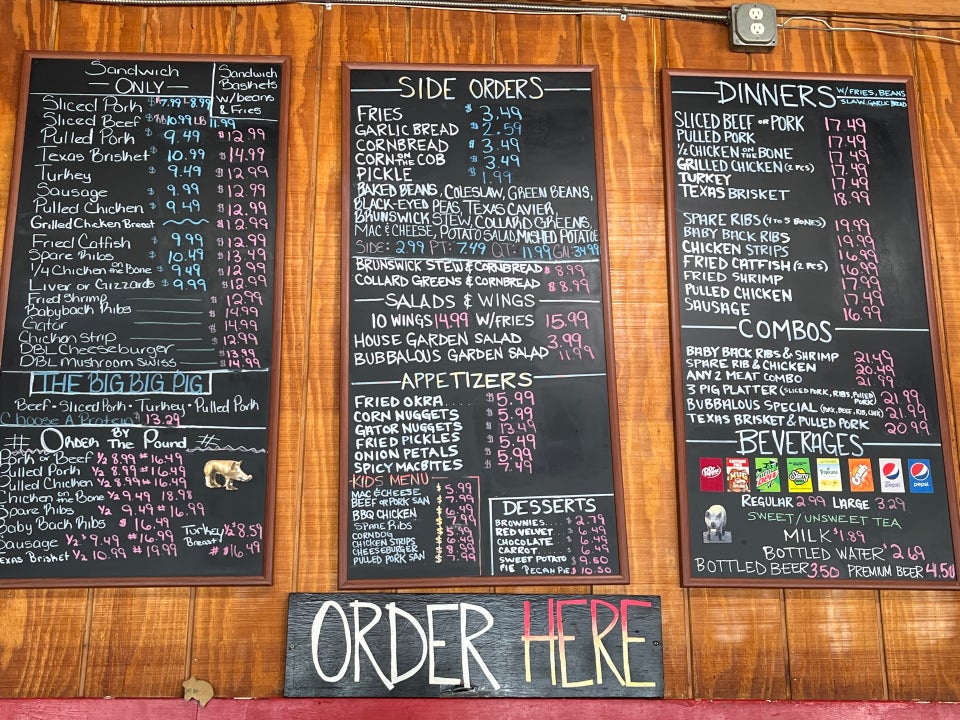 Sandwich
ONLY
Sandwich
Baskets
w/beans
& Fries
Sliced Pork $ 7.99 LB 8.99
Sliced Beef $ 10.99 LB 11.99
Pulled Pork $ 9.49 $12.99
Texas Brisket $ 10.99 $14.99
Turkey $ 9.49 $12.99
Sausage $ 9.99 $12.99
Pulled Chicken $ 9.49 $12.99
Grilled Chicken Breast $12.99
Fried Catfish $ 9.99 $12.99
Spare Ribs $ 10.49 $13.49
1/4 Chicken on the Bone $ 9.49 $12.99
Liver or Gizzards $ 9.99 $12.99
Fried Shrimp $12.99
Babyback Ribs $14.99
Gator $14.99
Chicken Strip $12.99
DBL Cheeseburger $13.99
DBL Mushroom Swiss $14.99
THE BIG BIG PIG
Beef · Sliced Pork · Turkey · Pulled Pork
Choose A Protein $ 13.29
# Order BY The Pound #
Pork or Beef 1/2 8.99 # 16.49
Pulled Pork 1/2 8.99 # 16.49
Pulled Chicken 1/2 8.99 # 16.49
Chicken on the Bone 1/2 9.49 18.98
Spare Ribs 1/2 9.49 # 16.99
Baby Back Ribs $ 16.49
Sausage 1/2 $ 9.49 # 16.99
Texas Brisket 1/2 10.99 # 19.99
Turkey Breast 1/2 $ 8.59
# $16.49
SIDE ORDERS
FRIES $ 3.49
GARLIC BREAD $ 2.59
CORNBREAD $ 3.49
CORN ON THE COB $ 3.49
PICKLE $ 1.99
BAKED BEANS, COLESLAW, GREEN BEANS,
BLACK-EYED PEAS, TEXAS CAVIER,
BRUNSWICK STEW, COLLARD GREENS,
MAC & CHEESE, POTATO SALAD, MASHED POTATOE
SIDE: 2.99 PT: 7.49 QT: 11.99 GAL: 34.99
BRUNSWICK STEW & CORNBREAD $ 8.99
COLLARD GREENS & CORNBREAD $ 8.99
SALADS & WINGS
10 WINGS 14.99 W/FRIES 15.99
HOUSE GARDEN SALAD 3.99
BUBBALOUS GARDEN SALAD 11.99
APPETIZERS
FRIED OKRA.... $5.99
CORN NUGGETS $5.99
GATOR NUGGETS 13.49
FRIED PICKLES $5.49
ONION PETALS $5.49
SPICY MACBITES $7.49
KIDS MENU
MAC & CHEESE $5.99
BEEF OR PORK SAN
BBQ CHICKEN
SPARE RIBS
CORNDOG
CHICKEN STRIPS
CHEESEBURGER
PULLED PORK SAN $7.99
DESSERTS
BROWNIES.... $2.79
RED VELVET $6.49
CHOCOLATE $6.49
CARROT $6.49
SWEET POTATO PIE $9.50
PECAN PIE $10.50
DINNERS W/FRIES, BEANS
SLAW, GARLIC BREAD
SLICED BEEF OR PORK 17.49
PULLED PORK 17.49
1/2 CHICKEN ON THE BONE 17.49
GRILLED CHICKEN (2 PCS) 17.49
TURKEY 17.49
TEXAS BRISKET 18.99
SPARE RIBS (4 TO 5 BONES) 19.99
BABY BACK RIBS 19.99
CHICKEN STRIPS 16.99
FRIED CATFISH (2 PCS) 16.99
FRIED SHRIMP 17.99
PULLED CHICKEN 17.49
SAUSAGE 16.99
COMBOS
BABY BACK RIBS & SHRIMP 21.49
SPARE RIB & CHICKEN 20.49
ANY 2 MEAT COMBO 21.99
3 PIG PLATTER (SLICED PORK, RIBS, PULLED PORK) 21.99
BUBBALOUS SPECIAL (PORK, BEEF, RIB, CHICK) 21.99
TEXAS BRISKET & PULLED PORK 20.99
BEVERAGES
Starry
Tropicana
pepsi
pepsi
REGULAR 2.99 LARGE 3.29
SWEET/UNSWEET TEA
MILK $1.89
BOTTLED WATER $2.69
BOTTLED BEER 3.50 PREMIUM BEER 4.50
ORDER HERE